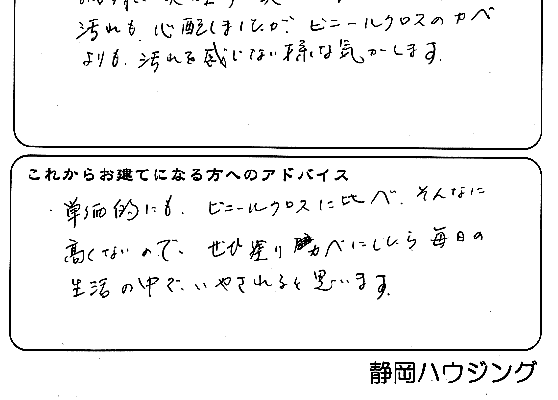 汚れも心配しましたが、ビニールクロスのカベ
よりも、汚れを感じない様な気がします。
これからお建てになる方へのアドバイス
・単価的にも、ビニールクロスに比べ、そんなに
高くないので、ぜひ塗りカベにしたら毎日の
生活の中で、いやされると思います。
静岡ハウジング